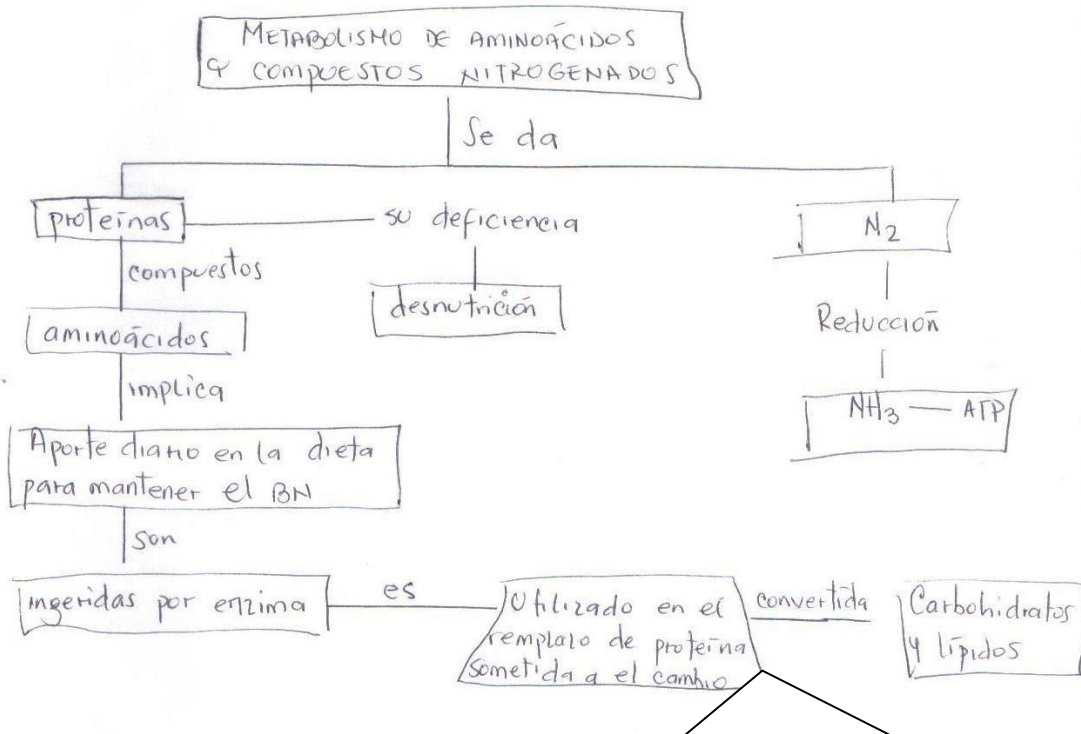 METABOLISMO DE AMINOÁCIDOS
Y COMPUESTOS NITROGENADOS
Se da
proteínas
su deficiencia
N2
compuestos
desnutrición
Reducción
aminoácidos
implica
NH3 — ATP
Aporte diario en la dieta
para mantener el BN
son
ingeridas por enzima
es
Utilizado en el
remplazo de proteína
sometida a el cambio
convertida
Carbohidratos
y lípidos